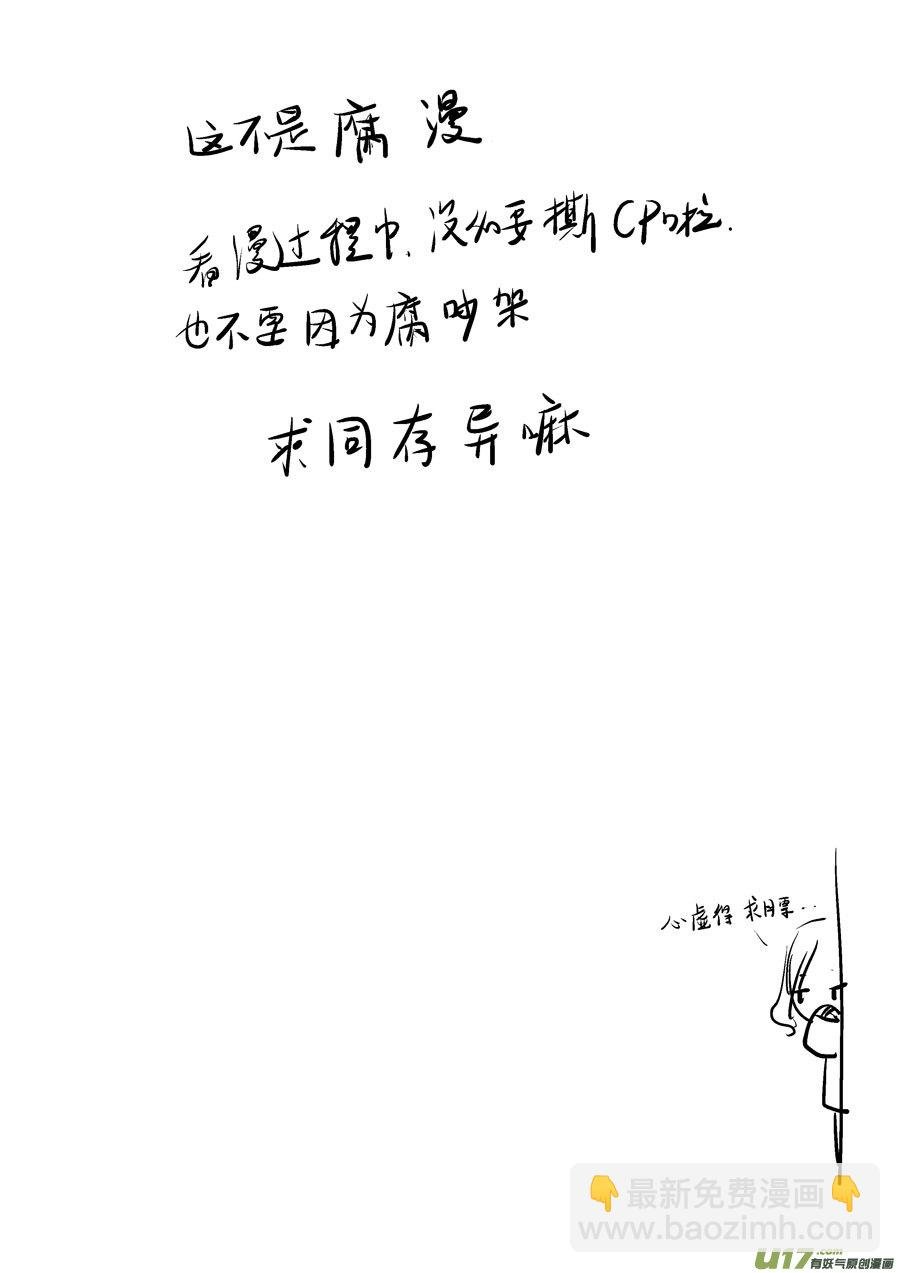 这不是腐漫
看漫过程中、没必要撕CP啦.
也不要因为腐吵架
求同存异嘛
心虚得求月票...
最新免费漫画
www.baozimh.com
U17.com
有妖气原创漫画